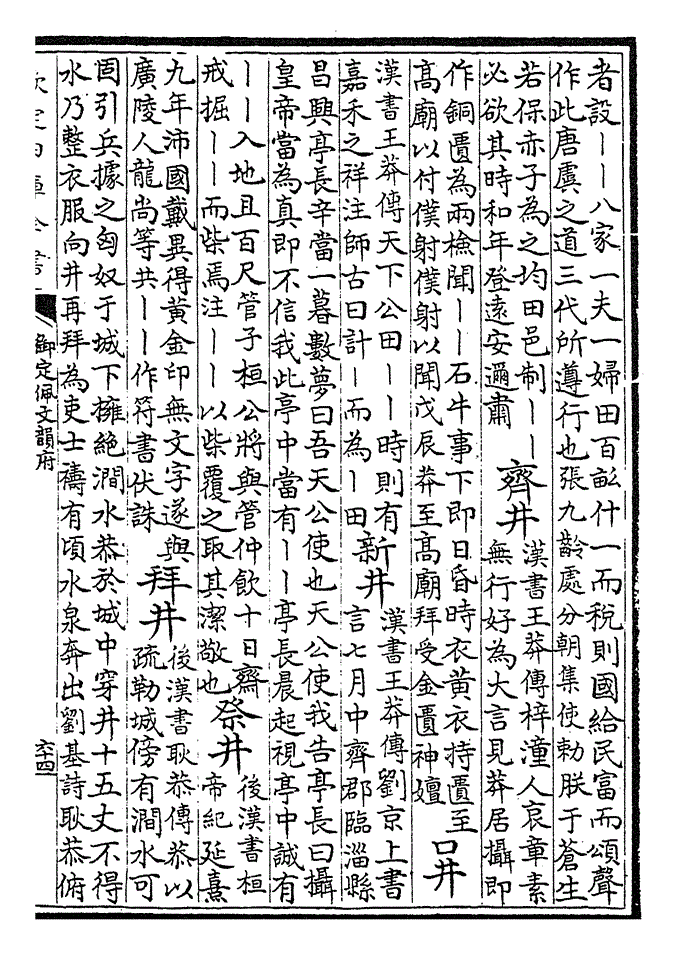 者設〡〡八家一夫一婦田百畝什一而稅則國給民富而頌聲
作此唐虞之道三代所遵行也張九齡處分朝集使勅朕于蒼生
若保赤子為之均田邑制〡〡
必欲其時和年登遠安邇肅
齊井
漢書王莽傳梓潼人哀章素
無行好為大言見莽居攝即
作銅匱為兩檢聞〡〡石牛事下即日昏時衣黃衣持匱至
高廟以付僕射僕射以聞戊辰莽至高廟拜受金匱神嬗
口井
漢書王莽傳天下公田〡〡時則有
嘉禾之祥注師古曰計〡而為〡田
新井
漢書王莽傳劉京上書
言七月中齊郡臨淄縣
昌興亭長辛當一暮數夢曰吾天公使也天公使我告亭長曰攝
皇帝當為真即不信我此亭中當有〡〡亭長晨起視亭中誠有
〡〡入地且百尺管子桓公將與管仲飲十日齋
戒掘〡〡而柴焉注〡〡以柴覆之取其潔敬也
祭井
後漢書桓
帝紀延熹
九年沛國戴異得黃金印無文字遂與
廣陵人龍尚等共〡〡作符書伏誅
拜井
後漢書耿恭傳恭以
疏勒城傍有澗水可
固引兵據之匈奴于城下擁絕澗水恭於城中穿井十五丈不得
水乃整衣服向井再拜為吏士禱有頃水泉奔出劉基詩耿恭俯
欽定四庫全書
御定佩文韻府
六十四